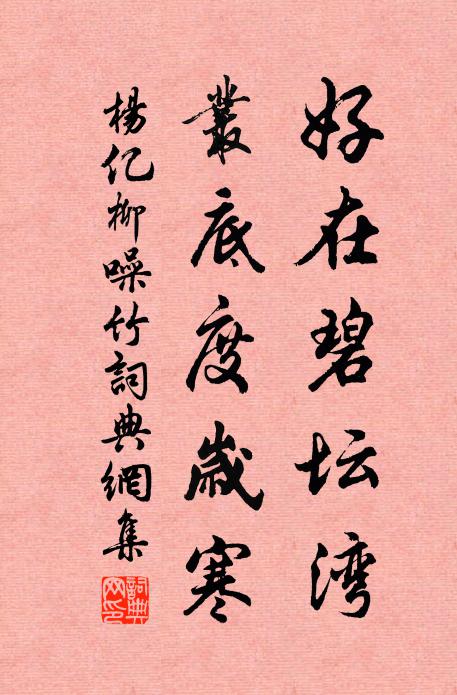 好在碧坛湾
叢底度歲寒
楊亿柳噪竹詞典網集
詞典网印